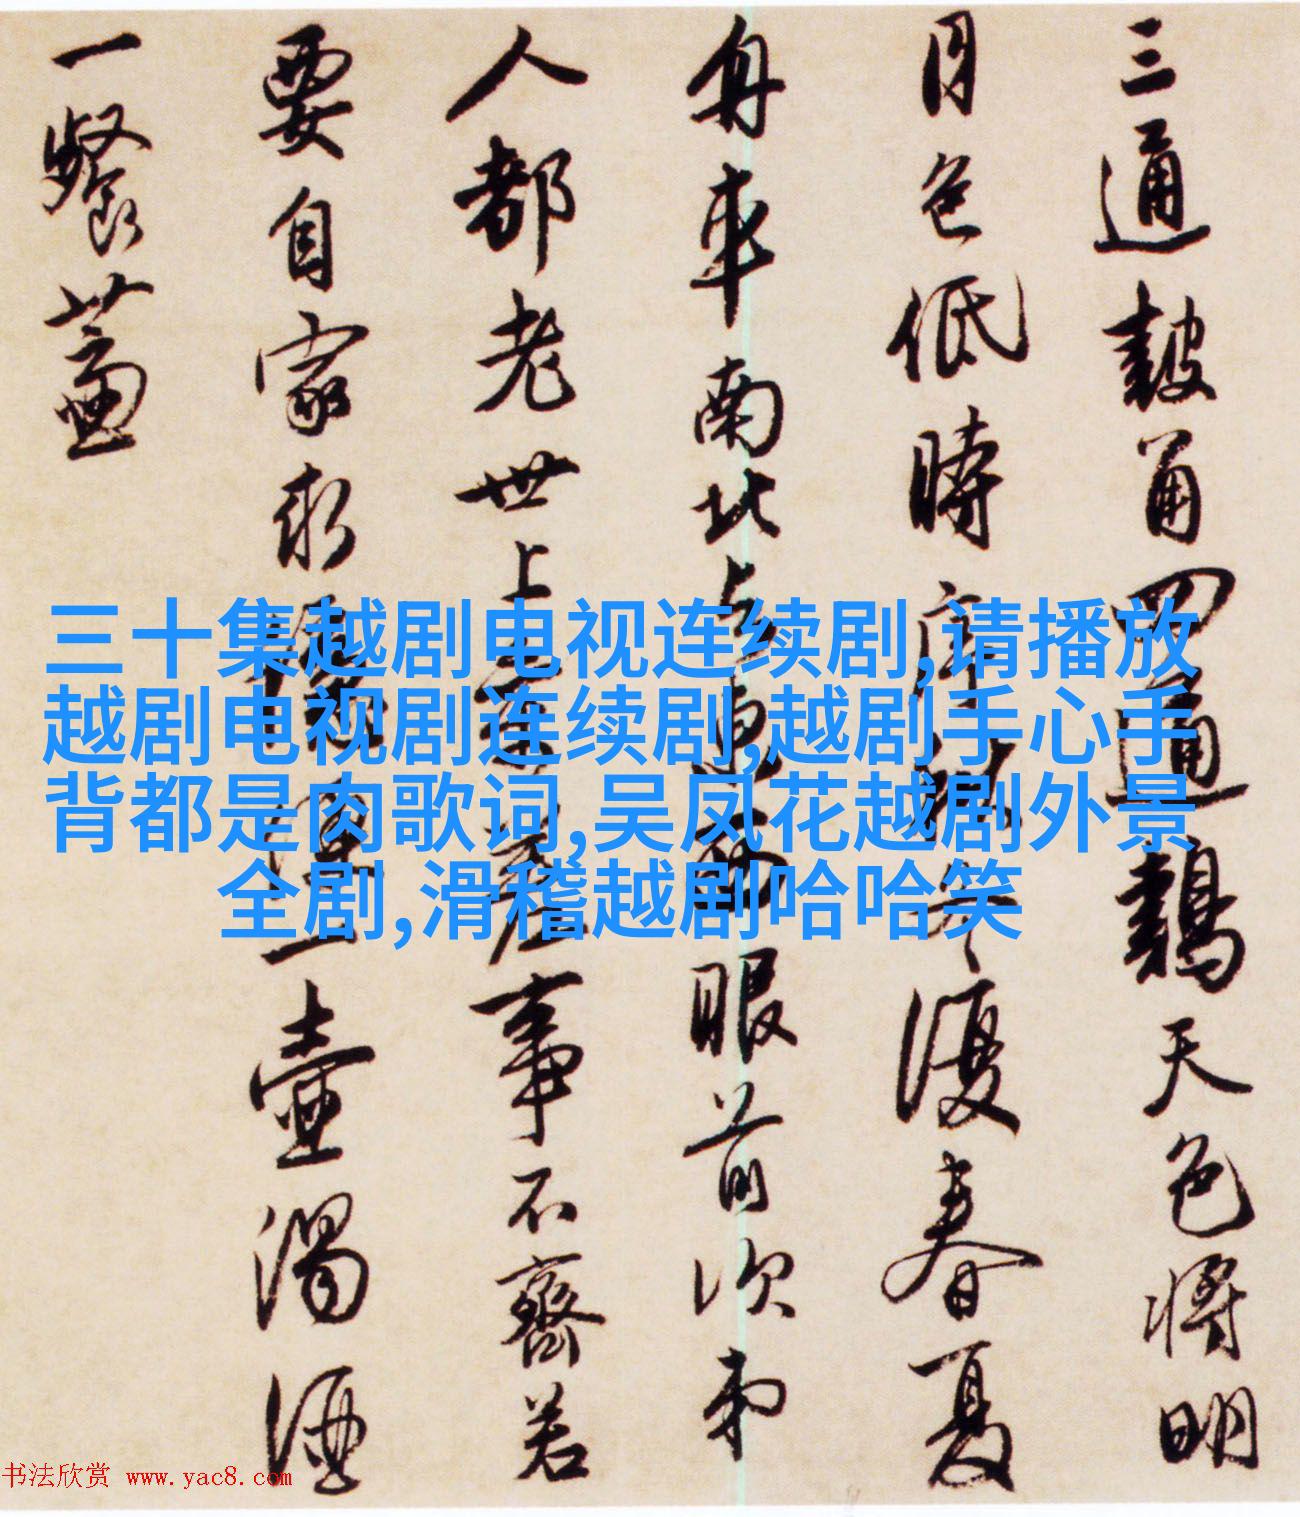 三通鼓角四通鷄天色将明
月色低時序秋冬復春夏
舟車南北与東西眼前次第
人都老世上参差事不齊若
要自家求穩便一壺濁酒
一餐虀
三十集越剧电视连续剧,请播放
越剧电视剧连续剧,越剧手心手
背都是肉歌词,吴凤花越剧外景
全剧,滑稽越剧哈哈笑
书法欣赏 www.yac8.com